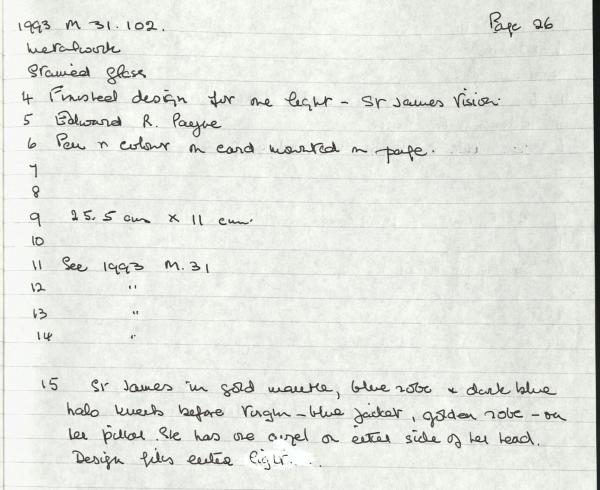 1993 M 31.102. Page 26
Metalwork
Stained glass
4 Finished design for one light - St James Vision.
5 Edward R. Payne
6 Pen n colour on card mounted on page.
7
8
9 25.5 cms x 11 cms.
10
11 See 1993 M.31
12 "
13 "
14 "
15 St James in gold mantle, blue robe & dark blue
halo kneels before Virgin - blue jacket, golden robe - on
her pillar. She has one angel on either side of her head.
Design fills entire light.